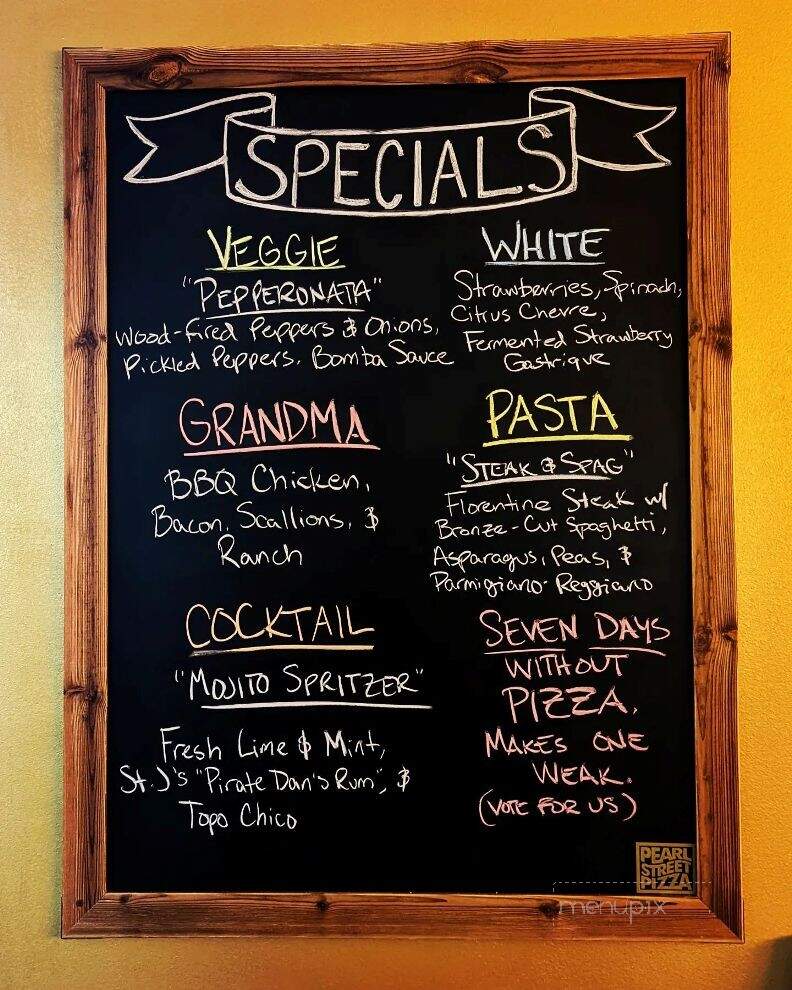 SPECIALS
VEGGIE
"PEPPERONATA"
Wood-fired Peppers & Onions,
Pickled Peppers, Bomba Sauce
WHITE
Strawberries, Spinach,
Citrus Chevre,
Fermented Strawberry
Gastrique
GRANDMA
BBQ Chicken,
Bacon, Scallions, &
Ranch
PASTA
"STEAK & SPAG"
Florentine Steak w/
Bronze-Cut Spaghetti,
Asparagus, Peas, &
Parmigiano-Reggiano
COCKTAIL
"MOJITO SPRITZER"
Fresh Lime & Mint,
St. J's "Pirate Dan's Rum", &
Topo Chico
SEVEN DAYS
WITHOUT
PIZZA,
MAKES ONE
WEAK.
(VOTE FOR US)
PEARL
STREET
PIZZA
menupix